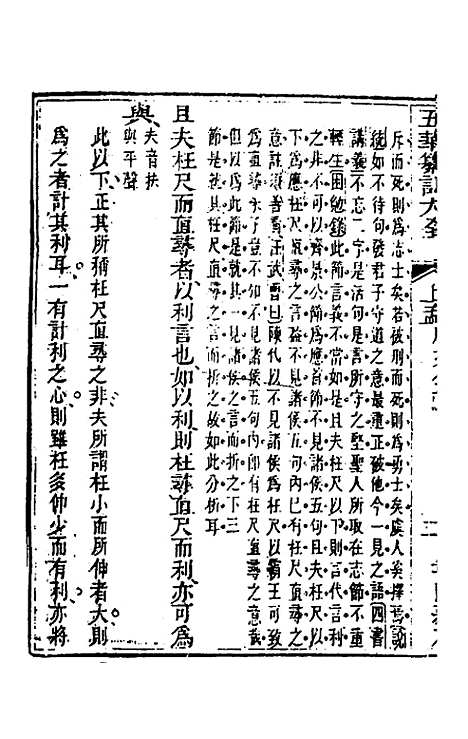 五華纂訂大全
上孟
斥而死則爲志士矣若被刑而死則爲勇士矣虞人奚擇焉説
統如不待句發君子守道之意最重正破他今一見之語四書
講義不忘二字是活句是言所守之堅聖人所取在志節不重
輕生困勉錄此節言義不當如是且夫枉尺以下則言代言利
之非不可以齊景公節爲應首節不見諸侯五句且夫枉尺以
下爲應枉尺直尋之言益不見諸侯五句内已有枉尺直尋之
意註
寔章大子豈不知不見諸侯五句内即有枉尺直尋之意哉
但以爲此節是就其一見諸侯之言而折之下三
節是就其枉尺直尋之言而折之故如此分析耳
且夫枉尺而直尋者以利言也如以利則枉尋直尺而利亦可爲
與夫音扶
與平聲
此以下正其所稱枉尺直尋之非夫所謂枉小而所伸者大則
爲之者計其利耳一有計利之心則雖枉多伸少而有利亦將